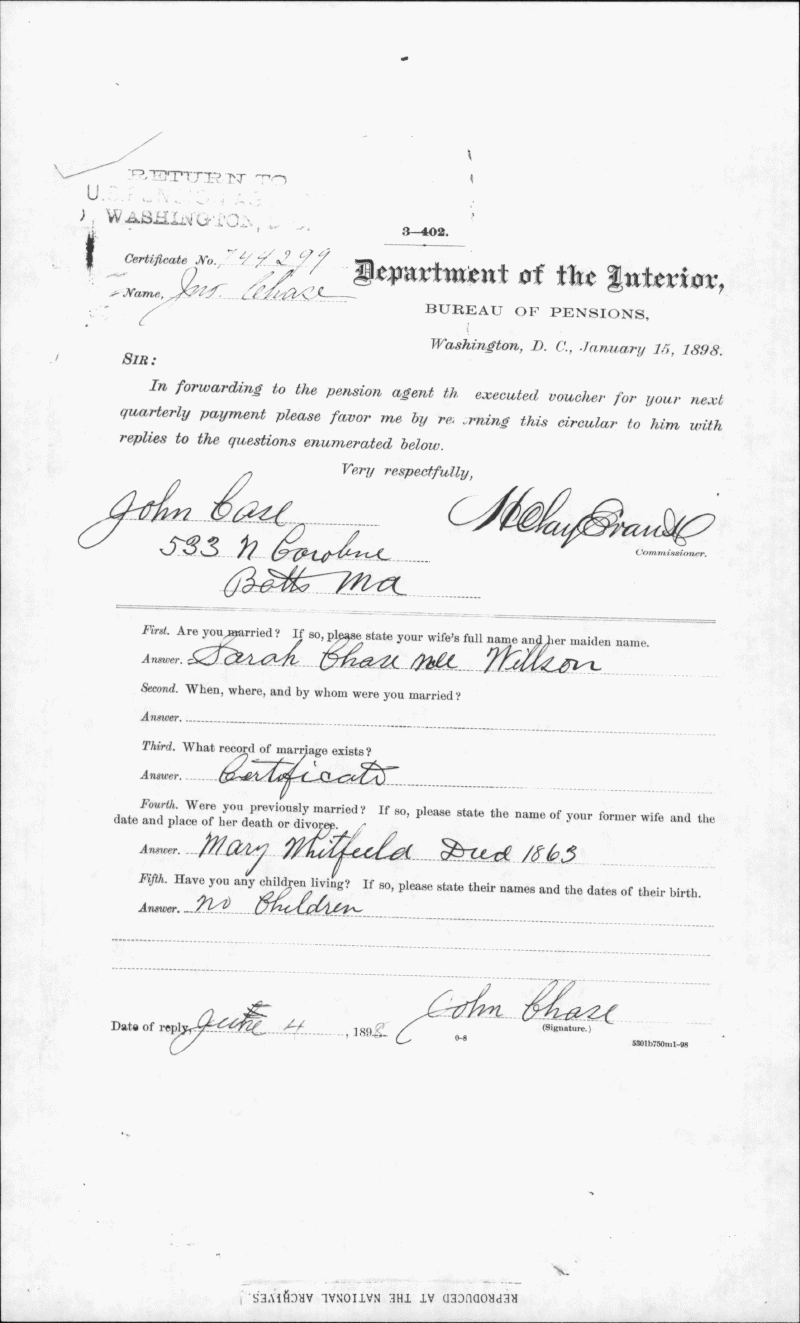 RETURN TO
U.S. PENSION AG
WASHINGTON, D.C.
3—402.
Certificate No. 744299
Name, Jno. Chase
Department of the Interior,
BUREAU OF PENSIONS,
Washington, D. C., January 15, 1898.
SIR:
In forwarding to the pension agent th executed voucher for your next
quarterly payment please favor me by re rning this circular to him with
replies to the questions enumerated below.
Very respectfully,
John Case
H Clay Evans
Commissioner.
533 N Caroline
Balto Md
First. Are you married? If so, please state your wife's full name and her maiden name.
Answer. Sarah Chase nee Willson
Second. When, where, and by whom were you married?
Answer.
Third. What record of marriage exists?
Answer. Certificate
Fourth. Were you previously married? If so, please state the name of your former wife and the
date and place of her death or divorce.
Answer. Mary Whitfield Died 1863
Fifth. Have you any children living? If so, please state their names and the dates of their birth.
Answer. no Children
Date of reply, June 4, 1898
John Chase
(Signature.)
0-8
5301b750m1-98
REPRODUCED AT THE NATIONAL ARCHIVES.